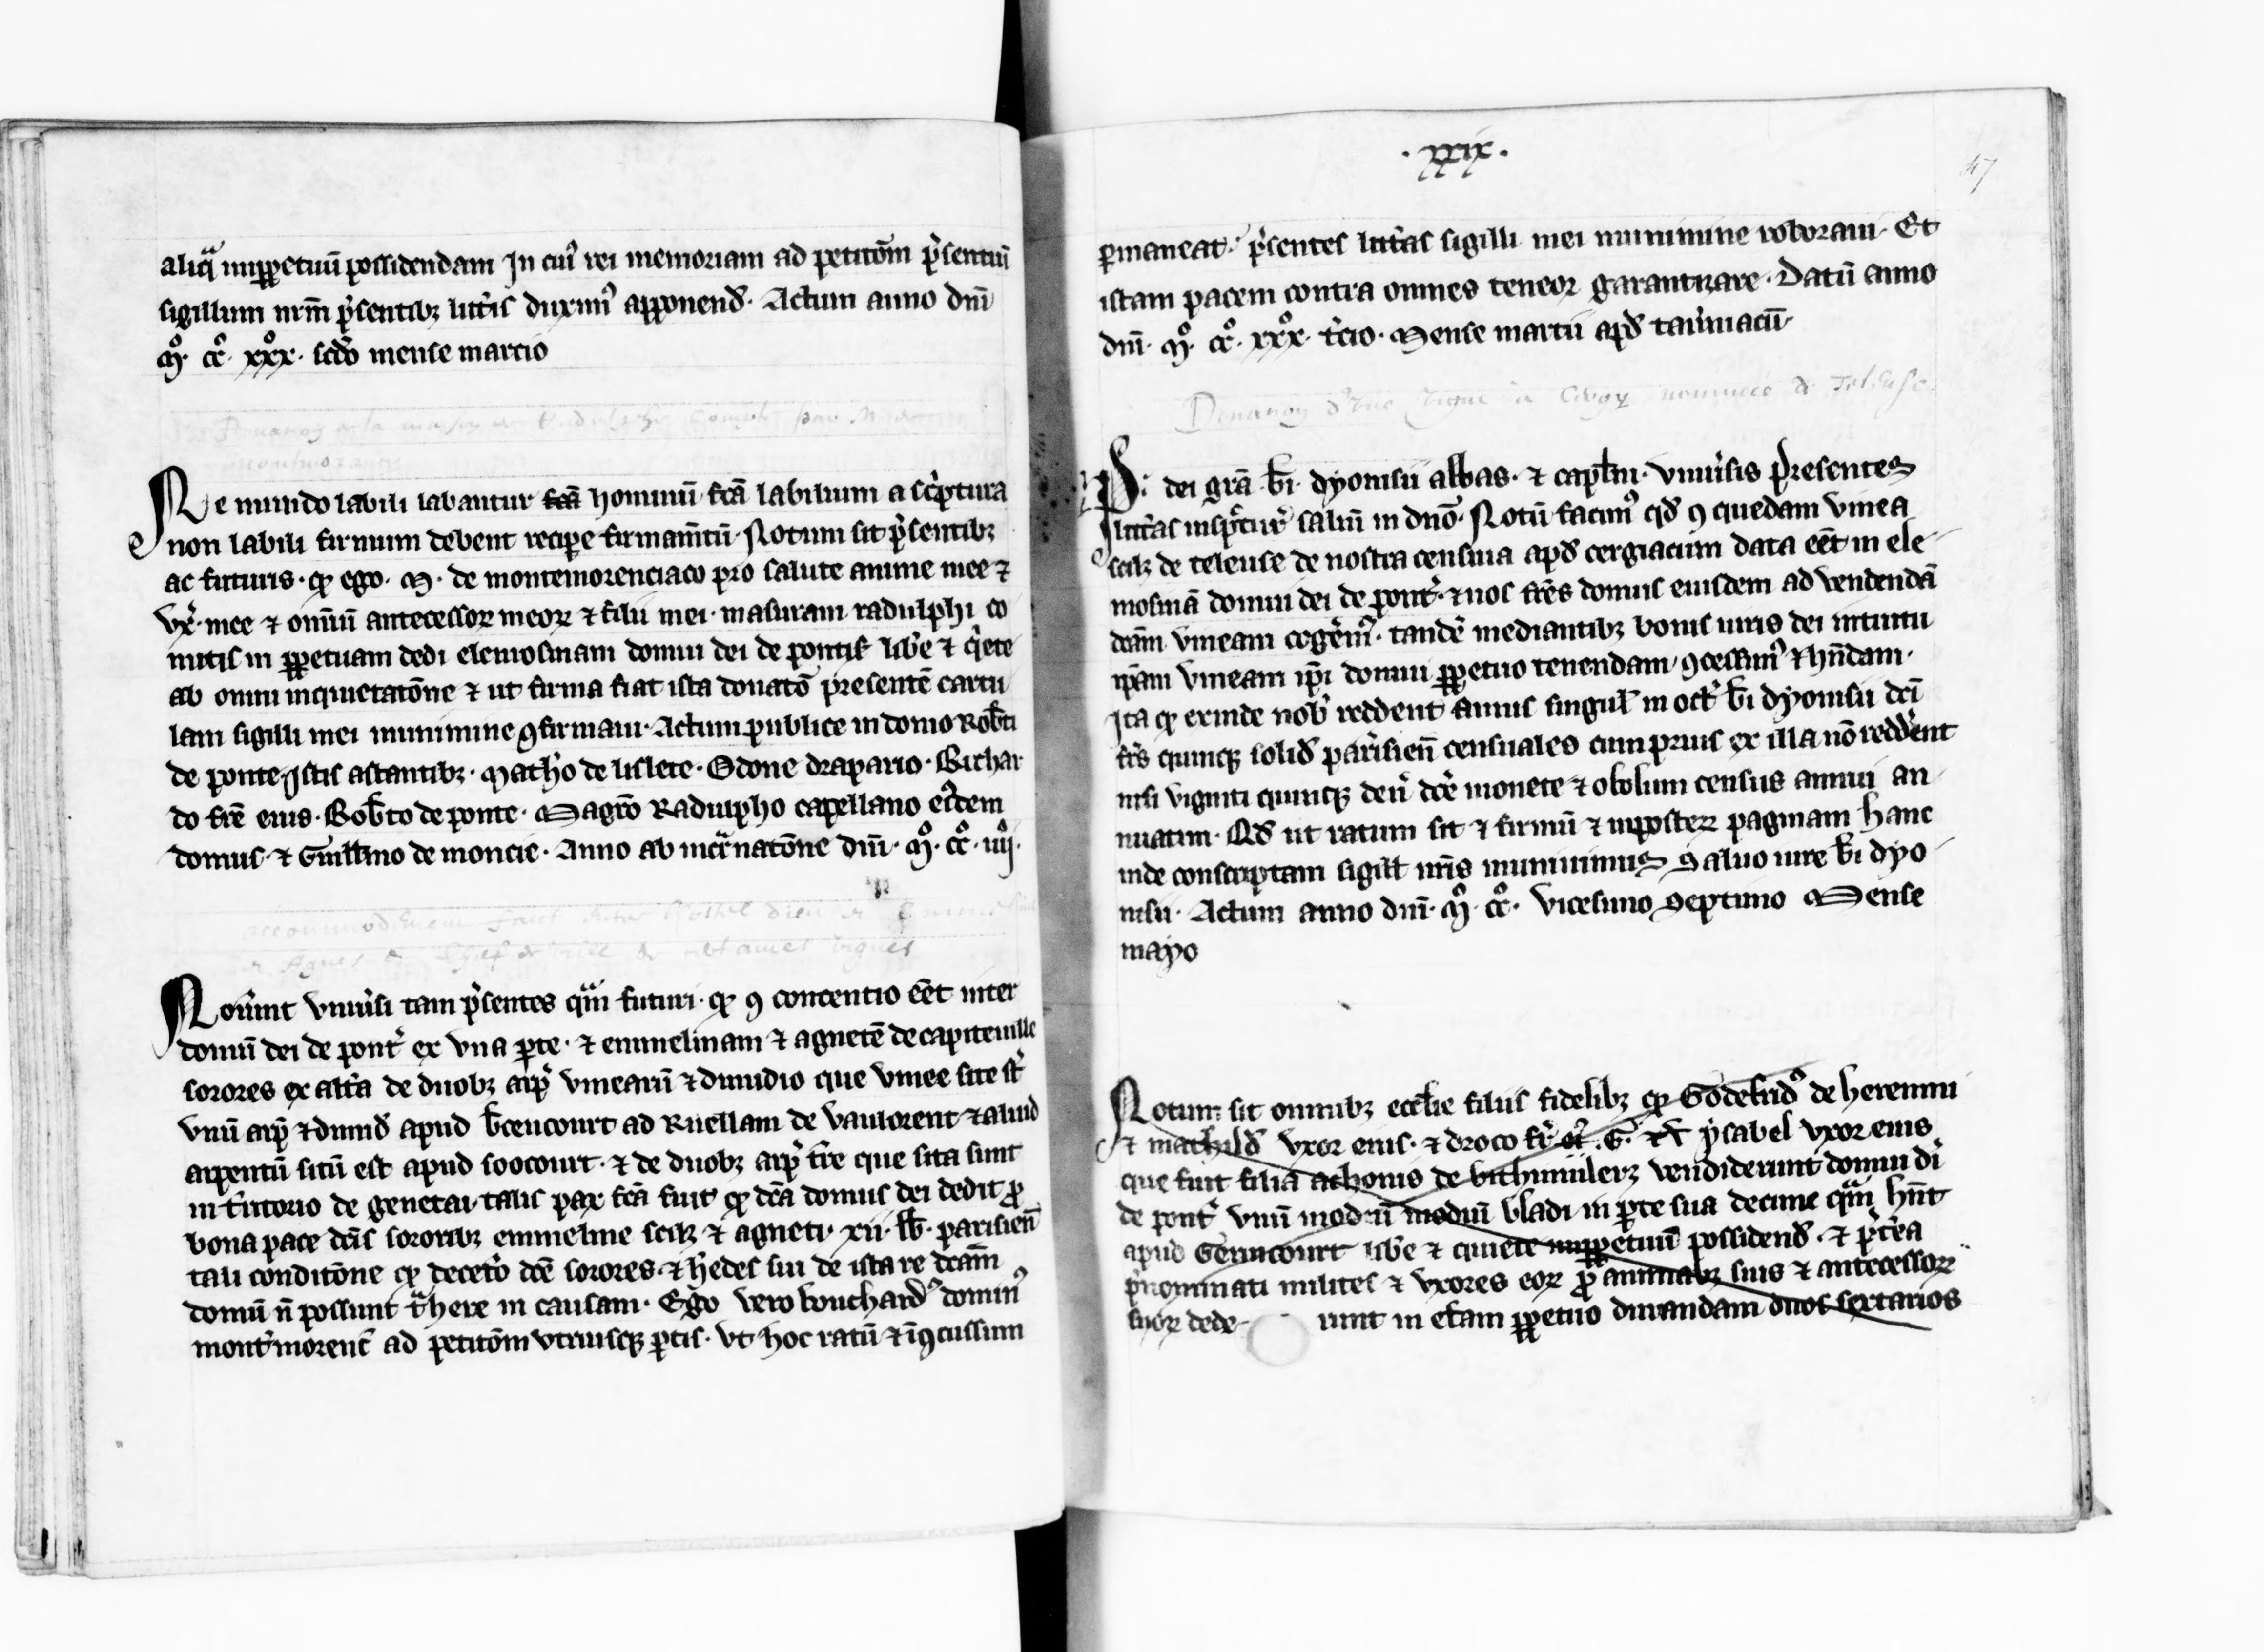 aliq̃ imꝑpetuũ possidendam In cuiꝰ rei memoriam ad petitõm p̃sentiũ
sigillum nr̃m p̃sentibꝫ litt̃is duximꝰ apponend̃. Actum anno dñi
mͦ. ccͦ. xxxͦ. scd̃o mense marcio
Ne mundo labili labantur fc̃a hominũ fc̃a labilium a sc̃ptura
non labili firmum debent recipe firmam̃tũ. Notum sit p̃sentibꝫ
ac futuris. ꝙ ego. M. de montemorenciaco pro salute anime mee ⁊
vx̃. mee ⁊ om̃iũ antecessoꝝ meoꝝ ⁊ filii mei. masuram radulphi co
mitis in ꝑpetuam dedi elemosinam domui dei de pontis̃ lib̃e ⁊ q̃ete
ab omni inquietatõne ⁊ ut firma fiat ista donatõ presentẽ cartu
lam sigilli mei munimine ꝯfirmaui. Actum publice in domo Rob̃ti
de ponte. Istis astantibꝫ. Math̃o de lislete. Odone drapario. Bichar
do fr̃e eius. Rob̃to de ponte. Magr̃o Radulpho capellano eiꝰdem
domus. ⁊ Guill̃mo de moncie. Anno ab incar̃natõne dñi. mͦ. ccͦ. iiijͦ.
Nou̾int vniũsi tam p̃sentes qm̃ futuri. ꝙ ꝯ contentio eẽt inter
domũ dei de pont̃ ex vna ꝑte. ⁊ emmelinam ⁊ agnetẽ de capiteuille
sorores ex alt̃a de duobꝫ arp̃ vinearũ ⁊ dimidio que vinee site st̃
vnũ arp̃ ⁊ dimid̃ apud b̃cencourt ad Ruellam de vaulorent ⁊ aliud
arpentũ sitũ est apud soocourt. ⁊ de duobꝫ arp̃ tr̃e que sita sunt
in t̃ritorio de genetai. talis pax fc̃a fuit ꝙ dc̃a domus dei dedit ꝓ
bona pace dc̃is sororibꝫ emmeline scilꝫ ⁊ agneti. xii. lib̃. parisieñ
tali conditõne ꝙ decet̃o dc̃e sorores. ⁊ h̃edes sui de ista re dc̃am
domũ ñ possunt t̃here in causam. Ego vero bouchardꝰ dominꝰ
mont̃morenc̃ ad petitõm vtriusqꝫ ꝑtis. vt hoc ratũ ⁊ ĩꝯcussum
. xxix .
47
ꝑmaneat. p̃sentes litt̃as sigilli mei munimine roboraui. Et
istam pacem contra omnes teneor garantizare. Datũ anno
dñi. mͦ. ccͦ. xxxͦ. t̃cio. Mense martii apd̃ tau̾niacũ.
Donation d'une vigne a nommee de Teleuse
P. dei grã b̃i dyonisii abbas. ⁊ capl̃m. vniũsis presentes
litt̃as inspc̃turꝰ salũ in dnõ. Notũ facimꝰ qd̃ ꝯ quedam vinea
scilꝫ de teleuse de nostra censiua apd̃ cergiacum data eẽt in ele
mosinã domui dei de pont̃. ⁊ nos fr̃es domus eiusdem ad vendendã
dc̃am vineam coger̃emꝰ. tandẽ mediantibꝫ bonis uiris dei intuitu
ip̃am vineam ip̃i domui ꝑpetuo tenendam ꝯcessimꝰ ⁊ hñdam.
Ita ꝙ exinde nob̃ reddent annis singul̃ in oct̃ b̃i dyonisii dc̃i
fr̃s quinqꝫ solid̃ parisieñ censuales cum prius ex illa nõ redd̃ent
nisi viginti quinqꝫ deñ dc̃e monete ⁊ obolum census annui an
nuatim. Qd̃ ut ratum sit ⁊ firmũ ⁊ inposteꝝ paginam hanc
inde conscriptam sigill̃ nr̃is muniuimus saluo iure b̃i dyo
nisii. Actum anno dñi. mͦ. ccͦ. vicesimo septimo Mense
mayo
Notum sit omnibꝫ eccl̃ie filiis fidelibꝫ ꝙ Godefridꝰ de heremui
⁊ mathild̃ vxor eius. ⁊ droco fr̃ eiꝰ. G. ysabel vxor eius
que fuit filia achonis de vendiderunt domui di
de pont̃ vnũ modiũ modiũ bladi in ꝑte sua decime qm̃ hñt
apud Genicourt lib̃e ⁊ quiete imꝑpetuũ possidend̃. ⁊ p̃t̃ea
p̃nominati milites ⁊ vxores eoꝝ ꝓ animabꝫ suis ⁊ antecessoꝝ
suoꝝ dede runt in el̃am ꝑpetuo durandam duos sextarios